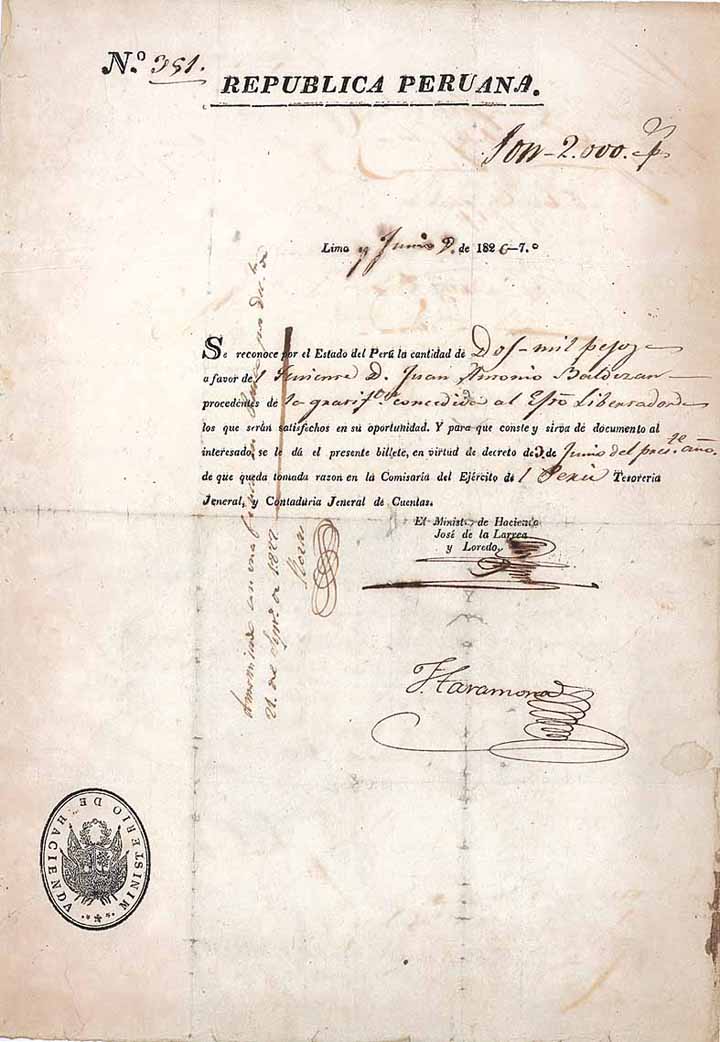 N.º 351.
REPUBLICA PERUANA.
Son - 2.000. ps
Lima y Junio 9. de 1826-7.º
Se reconoce por el Estado del Perú la cantidad de Dos-mil pesos
a favor del Teniente D. Juan Antonio Baldezan
procedentes de la gratif.on concedida al Ejto Libertador
los que serán satisfechos en su oportunidad. Y para que conste y sirva de documento al
interesado, se le dá el presente billete, en virtud de decreto de 9. de Junio del pres.te año.
de que queda tomada razon en la Comisaría del Ejército del Perú Tesoreria
Jeneral, y Contaduria Jeneral de Cuentas.
El Ministro de Hacienda
José de la Larrea
y Loredo.
MINISTERIO DE HACIENDA